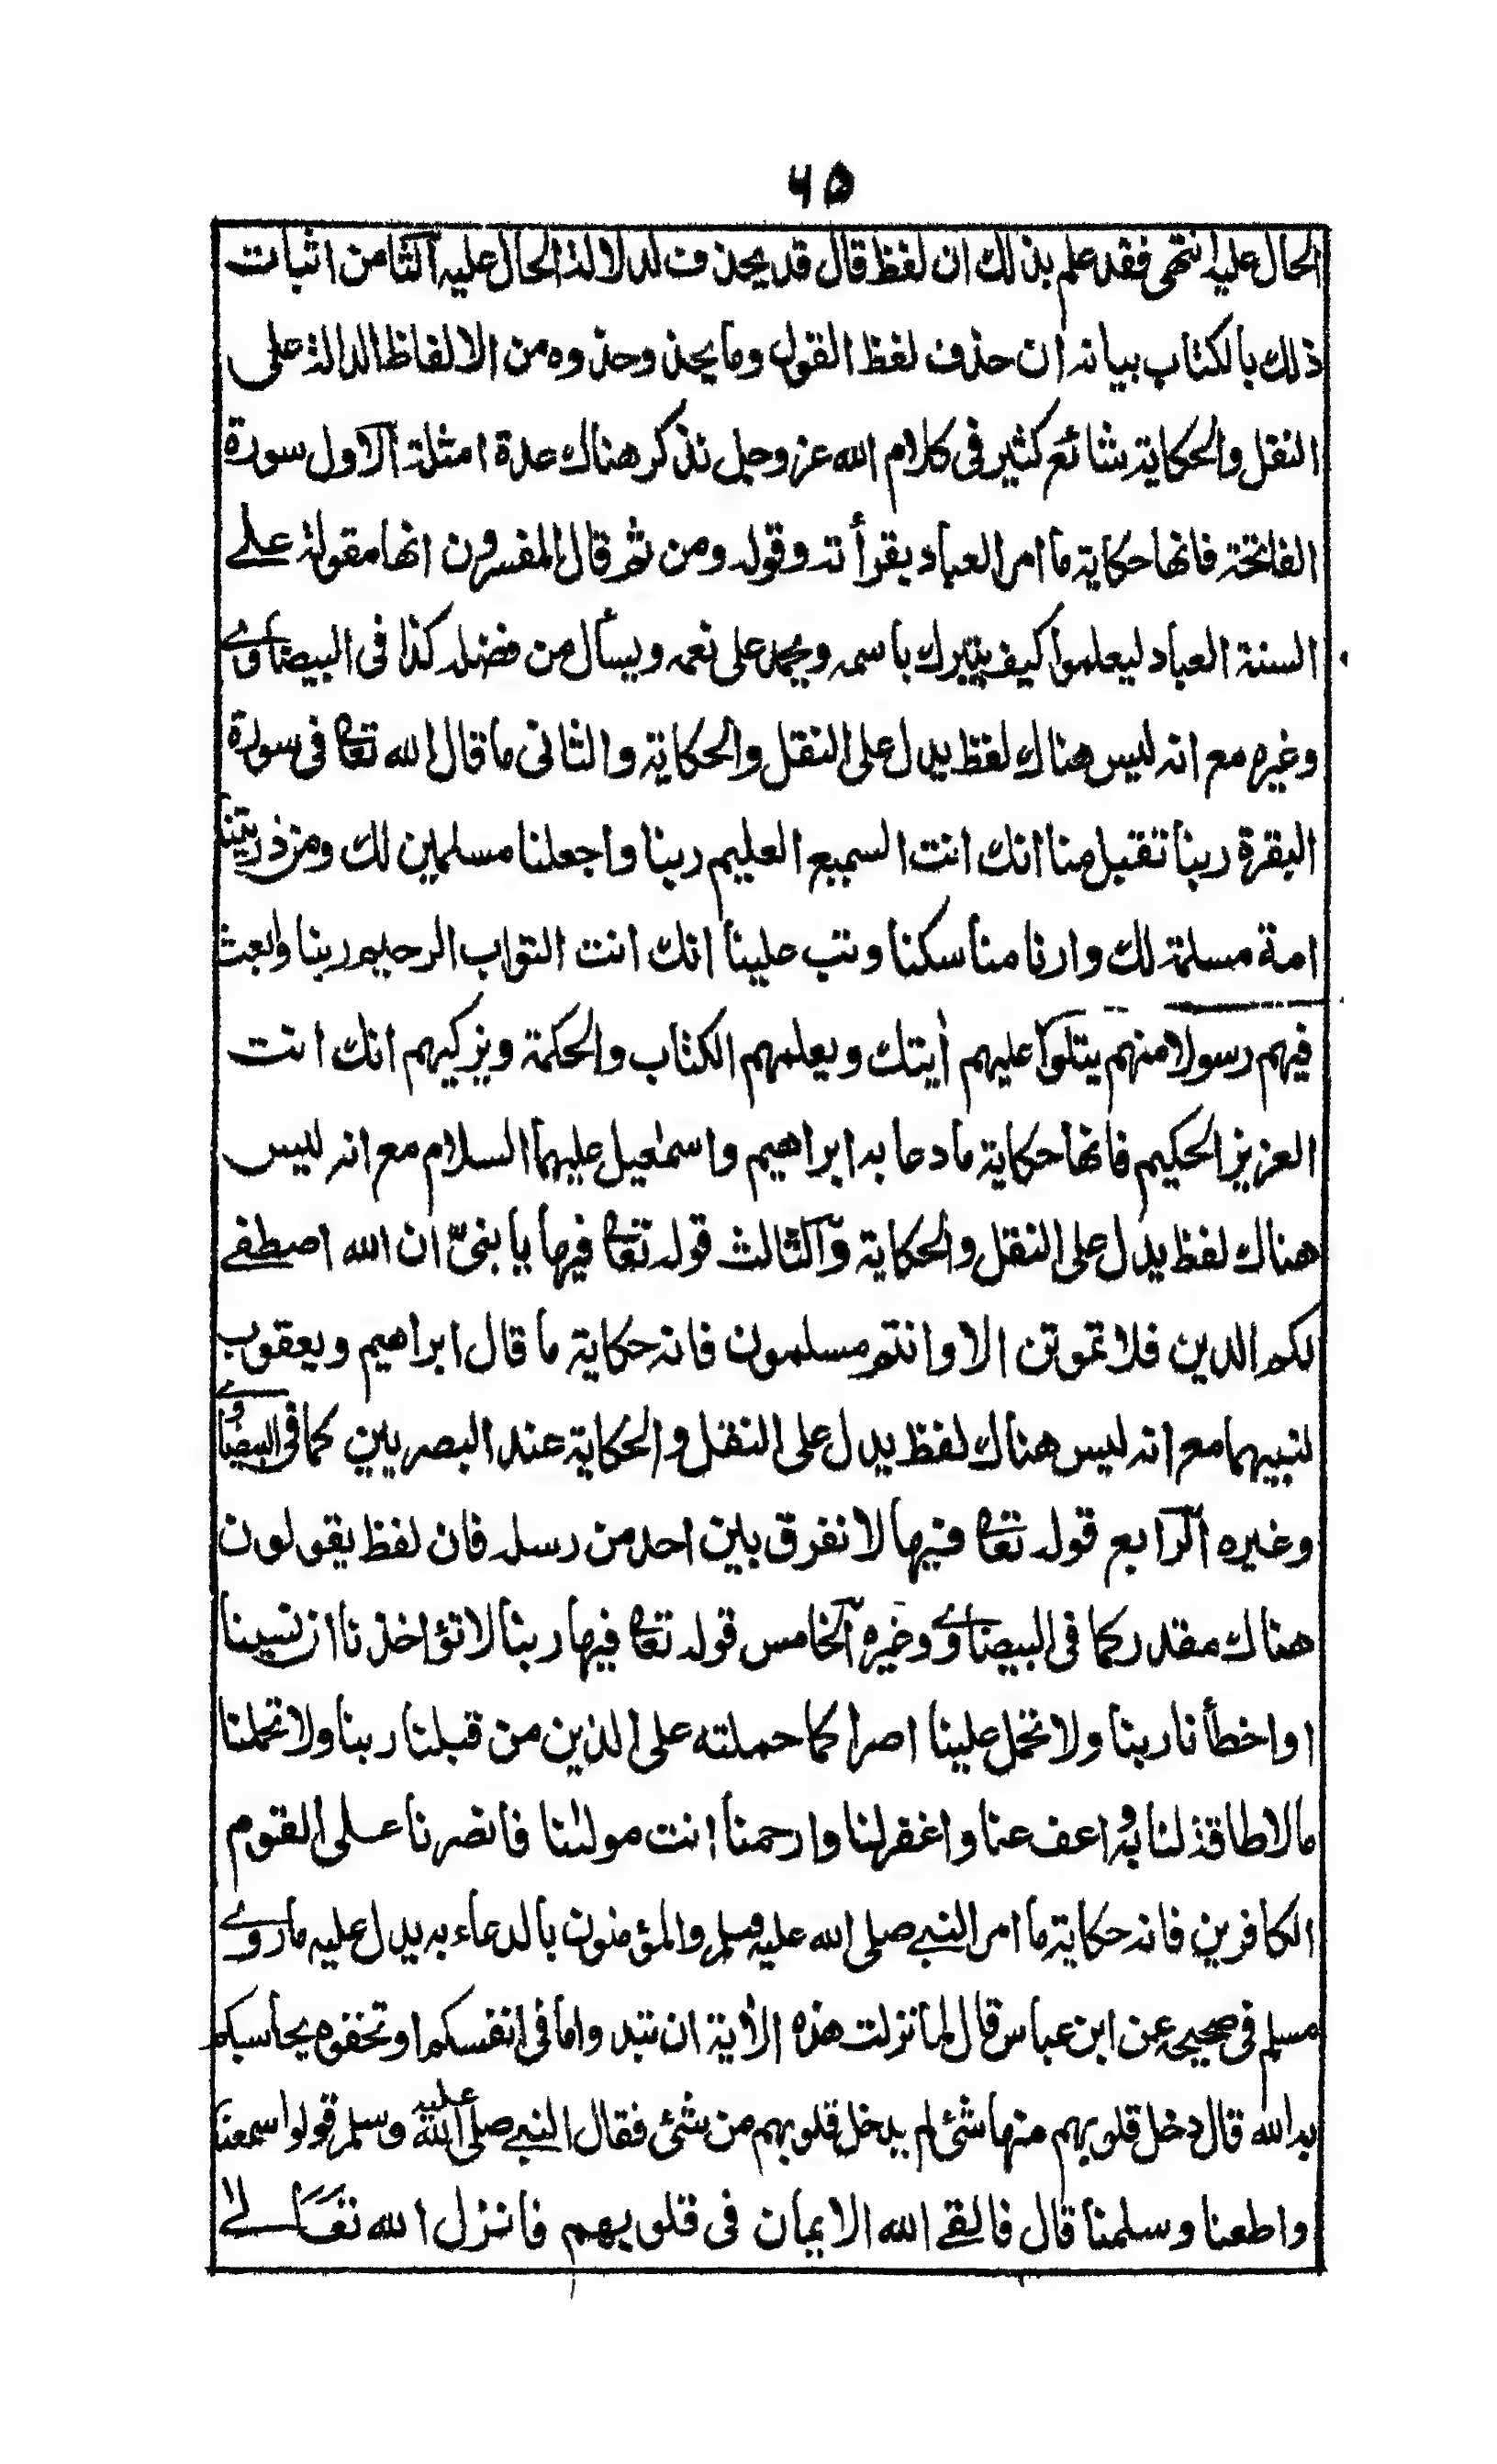 ۶۵
الحال عليه انتهى فقد علم بذلك ان لفظ قال قد يحذف لدلالة الحال عليه الثامن اثبات
ذلك بالكتاب بيانه ان حذف لفظ القول وما يحذو حذوه من الالفاظ الدالة على
النقل والحكاية شائع كثير فى كلام الله عز وجل نذكر هناك عدة امثلة الاول سورة
الفاتحة فانها حكاية ما امر العباد بقرأته وقوله ومن ثم قال المفسرون انها مقولة على
السنة العباد ليعلموا كيف يتبرك باسمه ويحمد على نعمه ويسأل من فضله كذا فى البيضاوے
وغيره مع انه ليس هناك لفظ يدل على النقل والحكاية والثانى ما قال الله تعا فى سورة
البقرة ربنا تقبل منا انك انت السميع العليم ربنا واجعلنا مسلمين لك ومن ذريتنا
امة مسلمة لك وارنا مناسكنا وتب علينا انك انت التواب الرحيم ربنا وابعث
فيهم رسولا منهم يتلوا عليهم أيتك ويعلمهم الكتاب والحكمة ويزكيهم انك انت
العزيز الحكيم فانها حكاية ما دعا به ابراهيم واسمٰعيل عليهما السلام مع انه ليس
هناك لفظ يدل على النقل والحكاية والثالث قوله تعا فيها يا بنىّ ان الله اصطفے
لكم الدين فلا تموتن الا وانتم مسلمون فانه حكاية ما قال ابراهيم ويعقوب
لنبيهما مع انه ليس هناك لفظ يدل على النقل والحكاية عند البصريين كما فى البيضاوے
وغيره الرابع قوله تعا فيها لا نفرق بين احد من رسله فان لفظ يقولون
هناك مقدر كما فى البيضاوے وغيره الخامس قوله تعا فيها ربنا لا تؤاخذنا ان نسينا
او اخطأنا ربنا ولا تحمل علينا اصرا كما حملته على الذين من قبلنا ربنا ولا تحملنا
ما لا طاقة لنا به واعف عنا واغفر لنا وارحمنا انت مولٰنا فانصرنا على القوم
الكافرين فانه حكاية ما امر النبے صلى الله عليه وسلم والمؤمنون بالدعاء به يدل عليه ما روے
مسلم فى صحيحه عن ابن عباس قال لما نزلت هذه الأية ان تبدوا ما فى انفسكم او تخفوه يحاسبكم
به الله قال دخل قلوبهم منها شئ لم يدخل قلوبهم من شئ فقال النبے صلى الله عليه وسلم قولوا سمعنا
واطعنا وسلمنا قال فالقے الله الايمان فى قلوبهم فانزل الله تعالىٰ